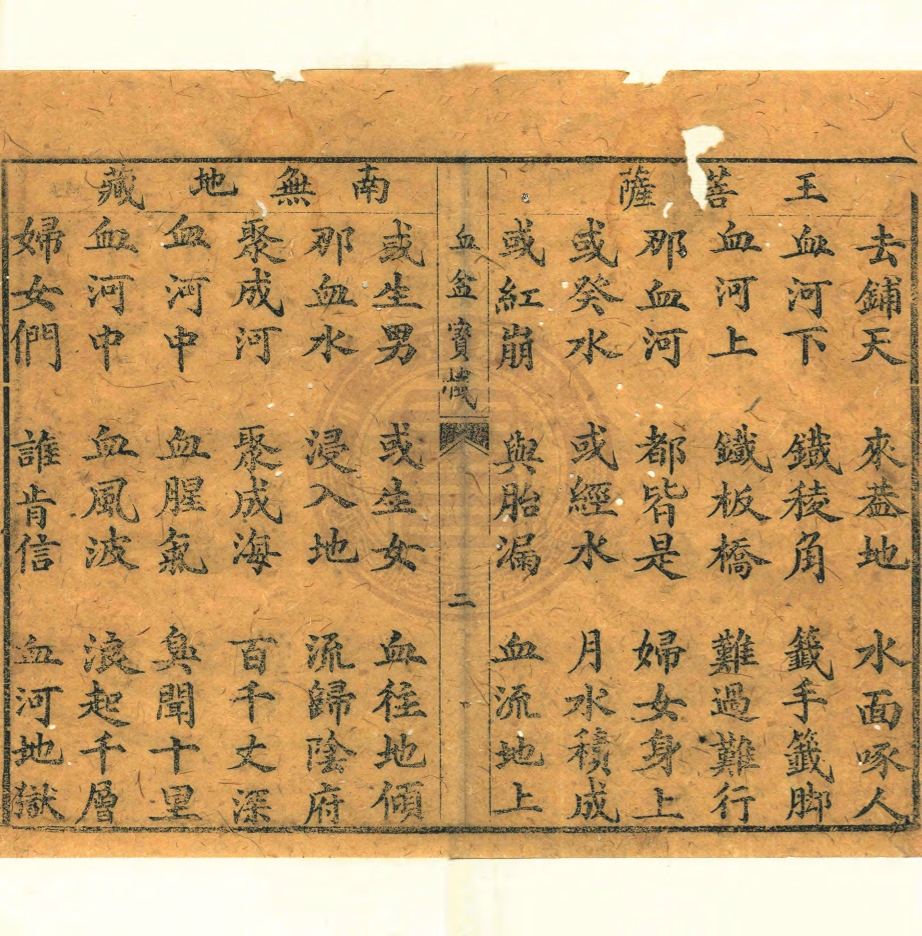 王菩薩
去鋪天 來葢地 水面啄人
血河下 鐡稜角 籤手籤脚
血河上 鐡板橋 難過難行
那血河 都皆是 婦女身上
或癸水 或經水 月水積成
或紅崩 與胎漏 血流地上
血盆寳懴 二
南無地藏
或生男 或生女 血往地傾
那血水 浸入地 流歸陰府
聚成河 聚成海 百千丈深
血河中 血腥氣 臭聞十里
血河中 血風波 浪起千層
婦女們 誰肯信 血河地獄